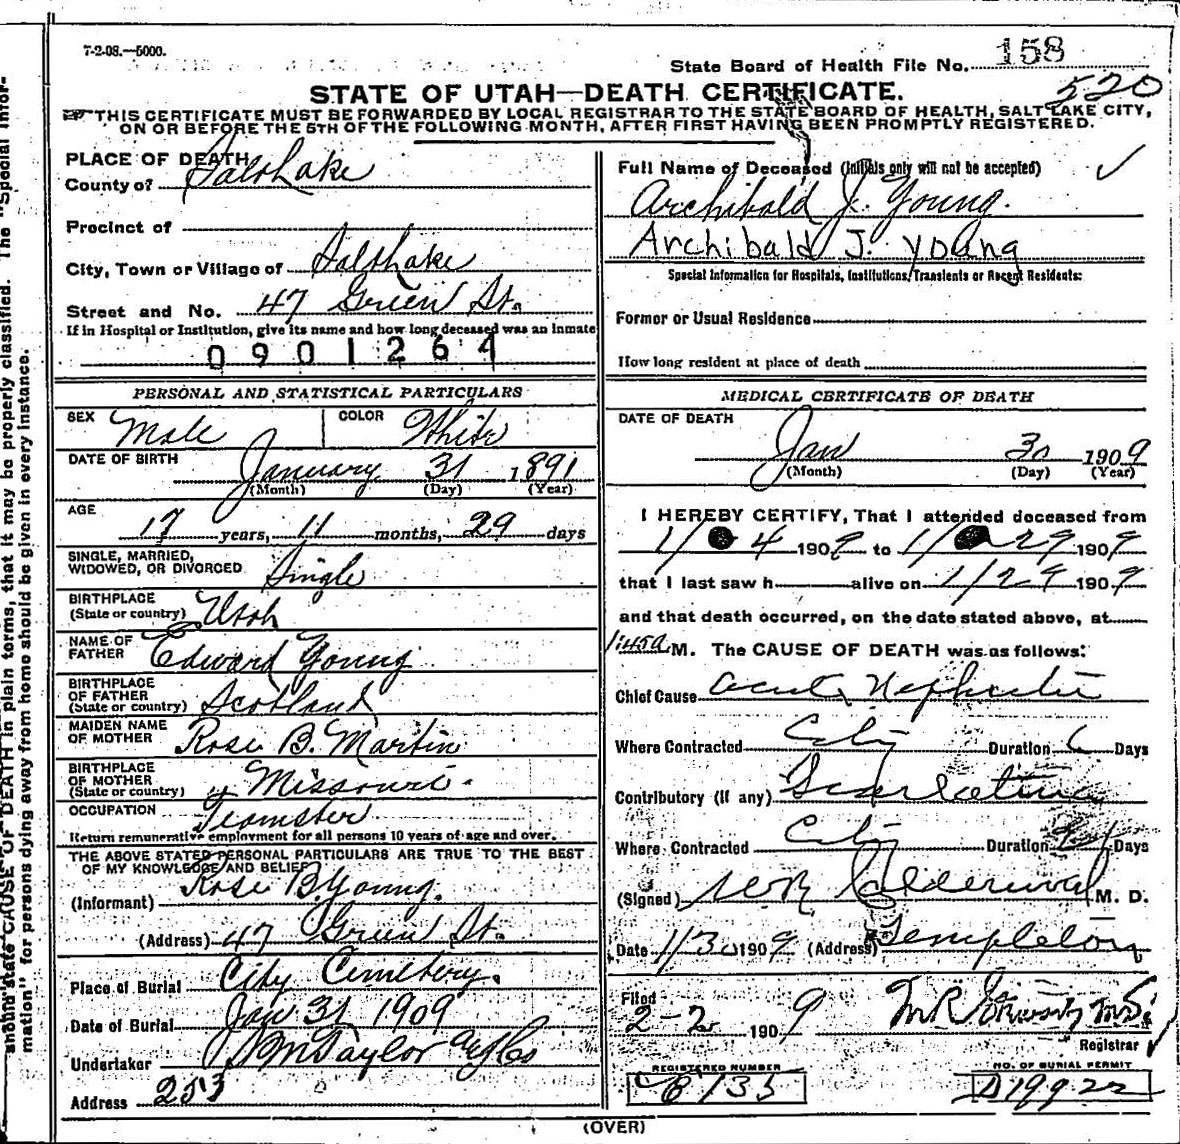 7-2-08.—5000.
State Board of Health File No. 158
520
STATE OF UTAH—DEATH CERTIFICATE.
THIS CERTIFICATE MUST BE FORWARDED BY LOCAL REGISTRAR TO THE STATE BOARD OF HEALTH, SALT LAKE CITY,
ON OR BEFORE THE 5TH OF THE FOLLOWING MONTH, AFTER FIRST HAVING BEEN PROMPTLY REGISTERED.
PLACE OF DEATH
County of Salt Lake
Precinct of
City, Town or Village of Salt Lake
Street and No. 47 Green St.
If in Hospital or Institution, give its name and how long deceased was an inmate
0901264
Full Name of Deceased (Initials only will not be accepted)
Archibald J. Young.
Archibald J. Young
Special Information for Hospitals, Institutions, Transients or Recent Residents:
Former or Usual Residence
How long resident at place of death
PERSONAL AND STATISTICAL PARTICULARS
SEX Male COLOR White
DATE OF BIRTH January 31 1891
(Month) (Day) (Year)
AGE
17 years, 11 months, 29 days
SINGLE, MARRIED,
WIDOWED, OR DIVORCED Single
BIRTHPLACE
(State or country) Utah
NAME OF
FATHER Edward Young
BIRTHPLACE
OF FATHER
(State or country) Scotland
MAIDEN NAME
OF MOTHER Rose B. Martin
BIRTHPLACE
OF MOTHER
(State or country) Missouri.
OCCUPATION Teamster
Return remunerative employment for all persons 10 years of age and over.
THE ABOVE STATED PERSONAL PARTICULARS ARE TRUE TO THE BEST
OF MY KNOWLEDGE AND BELIEF
(Informant) Rose B. Young.
(Address) 47 Green St.
Place of Burial City Cemetery.
Date of Burial Jan 31 1909
Undertaker Taylor
Address 253
MEDICAL CERTIFICATE OF DEATH
DATE OF DEATH
Jan 30 1909
(Month) (Day) (Year)
I HEREBY CERTIFY, That I attended deceased from
1/4 1909 to 1/29 1909
that I last saw h alive on 1/29 1909
and that death occurred, on the date stated above, at
1:45a M. The CAUSE OF DEATH was as follows:
Chief Cause Acute Nephritis
Where Contracted City Duration 6 Days
Contributory (if any) Scarlatina
Where Contracted City Duration Days
(Signed) Calderwood M. D.
Date 1/30 1909 (Address) Templeton
Filed
2-2 1909 M R
Registrar
REGISTERED NUMBER
C 135
NO. OF BURIAL PERMIT
D19922
(OVER)
should state CAUSE OF DEATH in plain terms, that it may be properly classified. The "Special Infor-
mation" for persons dying away from home should be given in every instance.